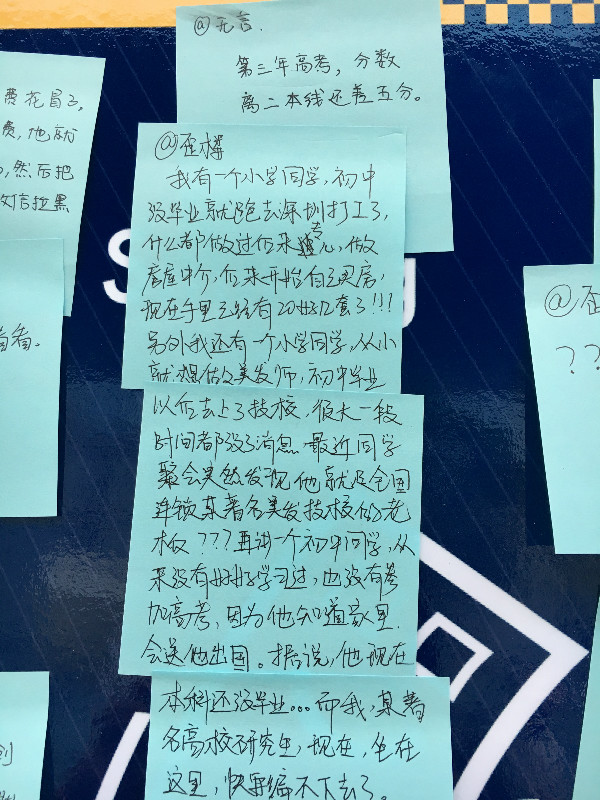 @无言.
第三年高考，分数
离二本线还差五分。
费花冒了,
费，他就
，然后把
微信拉黑
着。
@歪楼
我有一个小学同学，初中
没毕业就跑去深圳打工了，
什么都做过后来专儿，做
房屋中介，后来开始自己买房，
现在手里已经有20好几套了!!!
另外我还有一个小学同学，从小
就想做美发师，初中毕业
以后去上了技校，很大一段
时间都没了消息 最近同学
聚会突然发现他就是全国
连锁某著名美发技校的老
板???再讲一个初中同学，从
来没有好好学习过，也没有参
加高考，因为他知道家里
会送他出国。据说，他现在
本科还没毕业...而我，某著
名高校研究生，现在，坐在
这里，快要编不下去了。
@歪
??
S
g